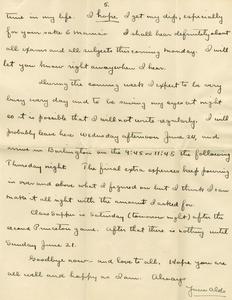 5.
time in my life. I hope I get my dip, especially
for your sake & Mama's. I shall hear definitely about
all exams and all subjects this coming Monday. I will
let you know right away when I hear.
During the coming week I expect to be very
busy every day and to be using my eyes at night
so it is possible that I will not write regularly. I will
probably leave here Wednesday afternoon June 24, and
arrive in Burlington on the 9:45 or 11:45 the following
Thursday night. The final extra expenses keep pouring
in over and above what I figured on but I think I can
make it all right with the amount I asked for.
Class Supper is Saturday (tomorrow night) after the
second Princeton game. After that there is nothing until
Sunday June 21.
Goodbye now - and love to all. Hope you are
all well and happy as I am. Always